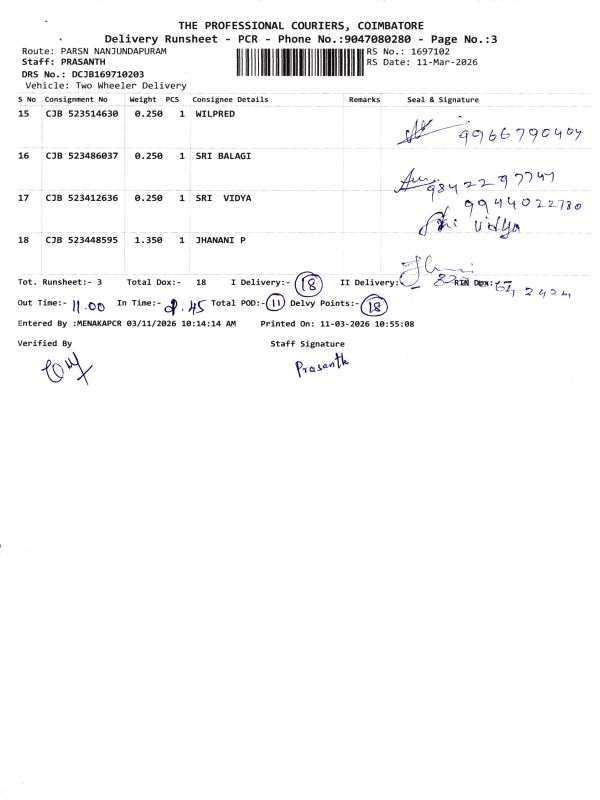 THE PROFESSIONAL COURIERS, COIMBATORE
Delivery Runsheet - PCR - Phone No.:9047080280 - Page No.:3
Route: PARSN NANJUNDAPURAM RS No.: 1697102
Staff: PRASANTH RS Date: 11-Mar-2026
DRS No.: DCJB169710203
Vehicle: Two Wheeler Delivery
S No Consignment No Weight PCS Consignee Details Remarks Seal & Signature
15 CJB 523514630 0.250 1 WILPRED
9966790404
16 CJB 523486037 0.250 1 SRI BALAGI
9842297747
17 CJB 523412636 0.250 1 SRI VIDYA
9944022780
Sri Vidya
18 CJB 523448595 1.350 1 JHANANI P
Tot. Runsheet:- 3 Total Dox:- 18 I Delivery:- 18 II Delivery:- RTN Dox:-
Out Time:- 11.00 In Time:- 8.45 Total POD:- 11 Delvy Points:- 18
Entered By :MENAKAPCR 03/11/2026 10:14:14 AM Printed On: 11-03-2026 10:55:08
Verified By Staff Signature
Prasanth